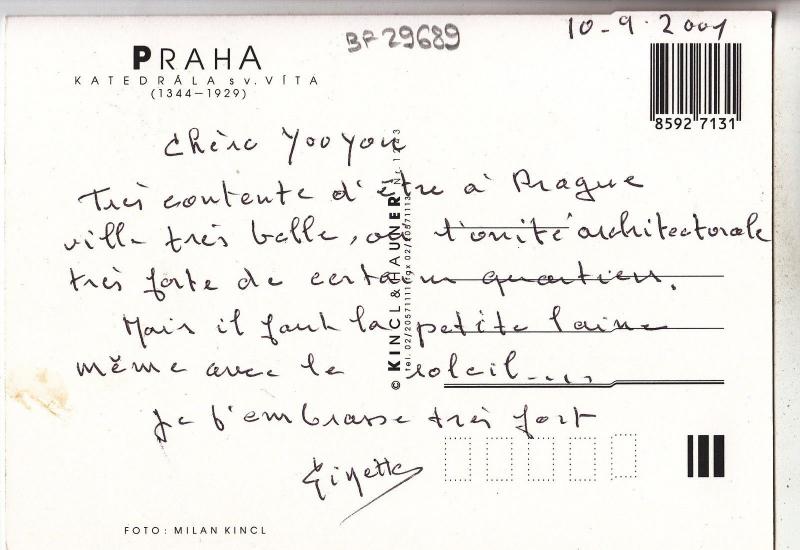 BF29689
10-9-2001
PRAHA
KATEDRÁLA sv. VÍTA
(1344–1929)
8592 7131
Chère Yooyou
Très contente d'être à Prague
ville très belle, où l'unité architectorale
très forte de certain quartier.
Mais il faut la petite laine
même avec le soleil....
Je t'embrasse très fort
Ginette
© KINCL & HAUNER
FOTO: MILAN KINCL